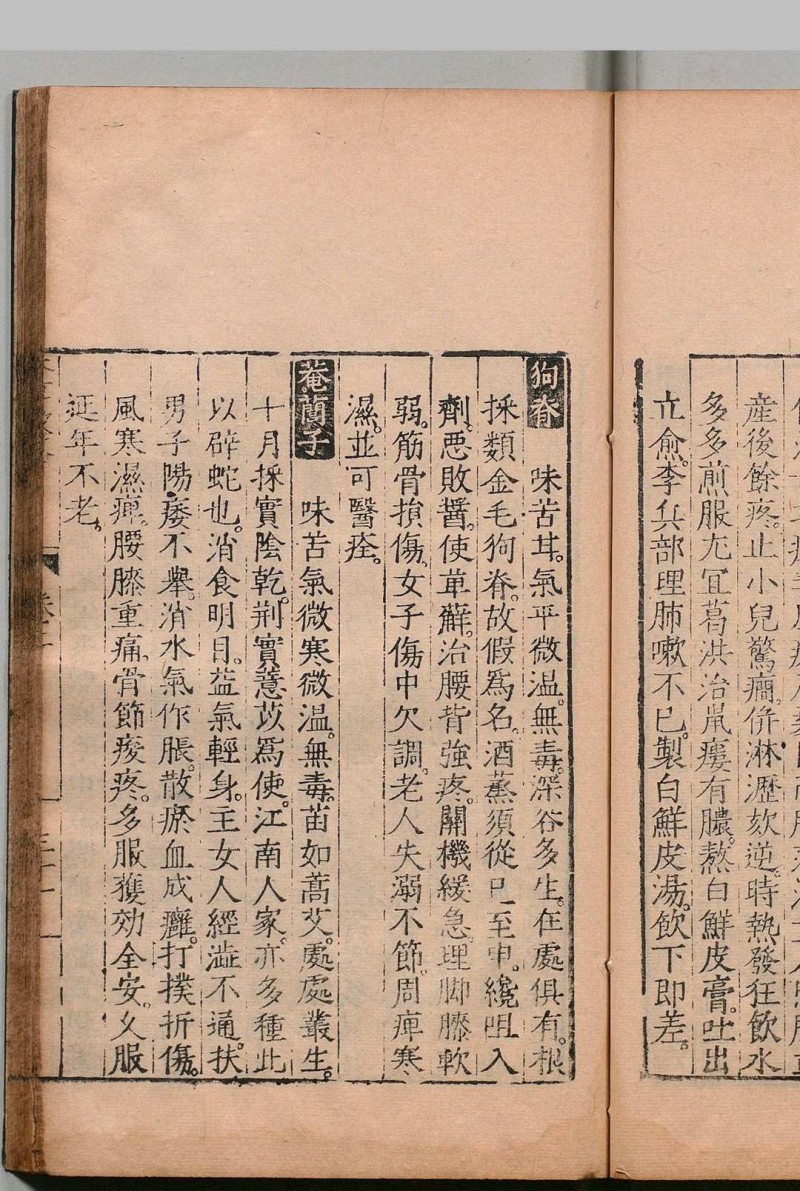 產後餘疼。止小兒驚癇。併淋瀝欬逆。時熱發狂飲水
多多煎服尤宜。葛洪治鼠瘻有膿。熬白鮮皮膏。吐出
立愈。李兵部理肺嗽不已。製白鮮皮湯。飲下即差。
狗脊 味苦甘。氣平微溫。無毒。深谷多生。在處俱有。根
採類金毛狗脊。故假爲名。酒蒸須從巳至申。纔咀入
劑。惡敗醬。使萆薢。治腰背強疼。關機緩急。理脚膝軟
弱。筋骨損傷。女子傷中欠調。老人失溺不節。周痺寒
濕。並可醫痊。
菴䕡子 味苦氣微寒微溫。無毒。苗如蒿艾。處處叢生。
十月採實陰乾。荆實薏苡爲使。江南人家。亦多種此
以辟蛇也。消食明目。益氣輕身。主女人經澁不通。扶
男子陽痿不舉。消水氣作脹。散瘀血成癰。打撲折傷。
風寒濕痺。腰膝重痛。骨節痠疼。多服獲効全安。久服
延年不老。
卷之